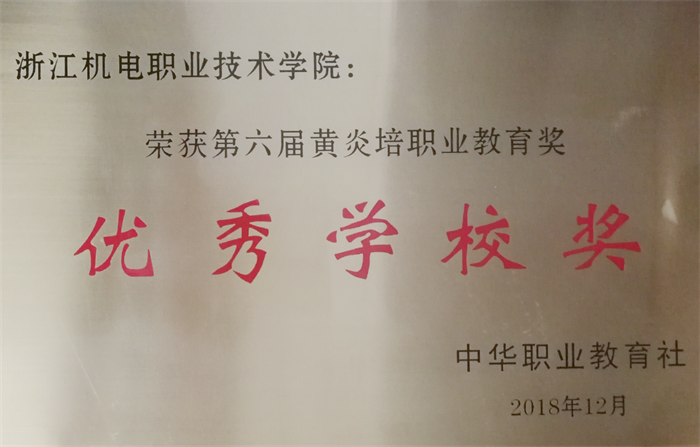 浙江机电职业技术学院：
荣获第六届黄炎培职业教育奖
优秀学校奖
中华职业教育社
2018年12月